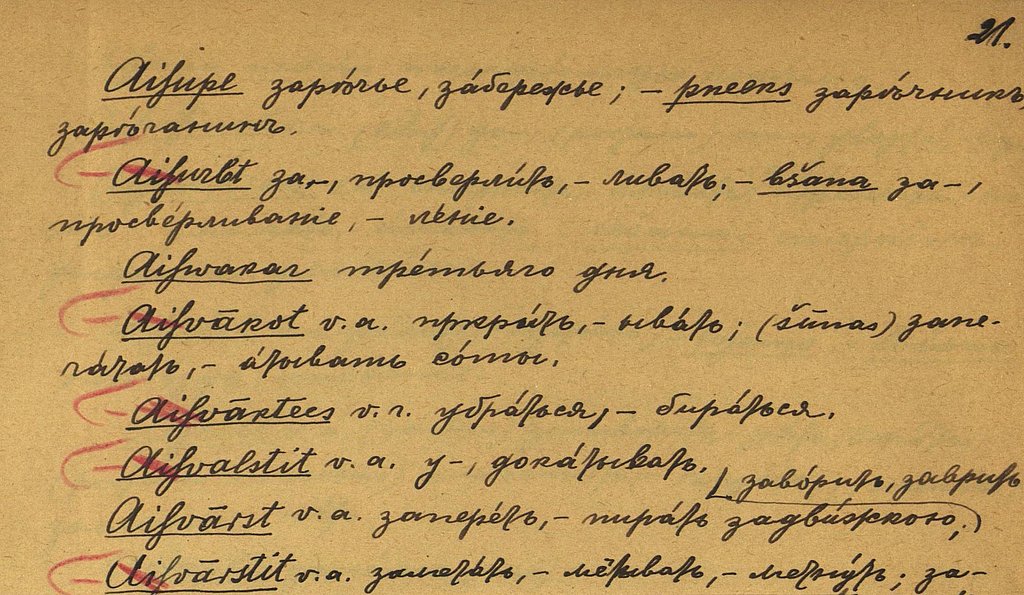 21.
Aiſupe зарѣ́чье, зáбережье; – pneeks зарѣ́чникъ,
зарѣчанинъ.
Aiſurbt за–, просверли́ть, – ливать; – bšana за–,
просвéрливаніе, – лéніе.
Aiſwakar трéтьяго дня.
Aiſvākot v. a. прикры́ть, – ывáть; (šūnas) запе-
чáтать, – áтывать сóты.
Aiſvāktees v. r. убрáться, – бирáться.
Aiſvalstit v. a. у–, докáтывать.
завóрить, заврить
Aiſvārst v. a. заперéть, – пирáть задви́жкою;
Aiſvārstit v. a. заметáть, – мётывать, – метнýть; за-